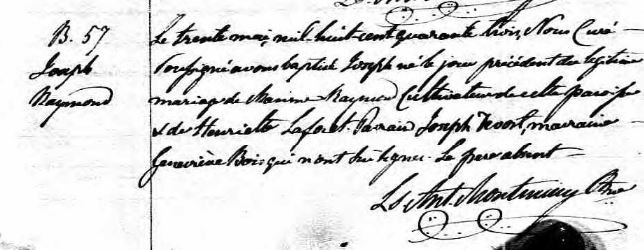 B. 57
Joseph
Raymond
Le trente mai, mil-huit-cent quarante trois, Nous Curé
soussigné avons baptisé Joseph né le jour précédent du légitime
mariage de Maxime Raymond Cultivateur de cette paroisse
& de Henriette Laforet. Parain Joseph maraine
Geneviève Bois qui n'ont su signer. Le père absent
Ls Ant. Montminy Ptre